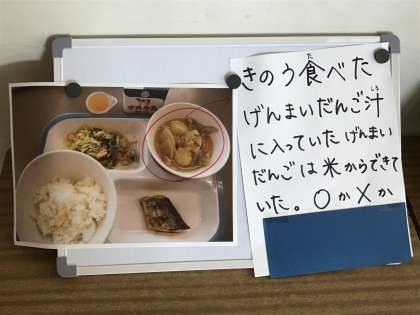 きのう食べた
げんまいだんご汁
に入っていたげんまい
だんごは米からできて
いた。○か×か